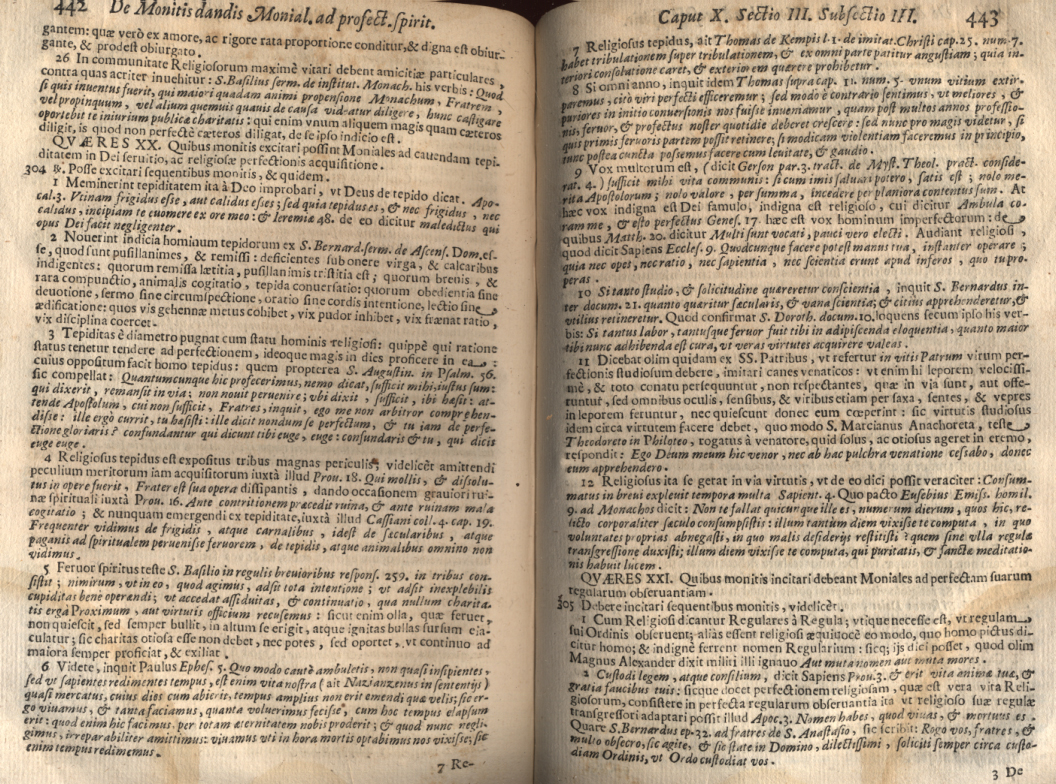 442 De Monitis dandis Monial. ad profect. spirit.
gantem: quæ verò ex amore, ac rigore rata proportione conditur, & digna est obiur-
gante, & prodest obiurgato.
26 In communitate Religiosorum maximè vitari debent amicitiæ particulares,
contra quas acriter inuehitur: S. Basilius serm. de institut. Monach. his verbis: Quod
si quis inuentus fuerit, qui maiori quadam animi propensione Monachum, Fratrem,
vel propinquum, vel alium quemuis quauis de causa videatur diligere, hunc castigare
oportebit te iniurium publicæ charitatis: qui enim vnum aliquem magis quam cæteros
diligit, is quod non perfectè cæteros diligat, de se ipso indicio est.
QVÆRES XX. Quibus monitis excitari possint Moniales ad cauendam tepi-
ditatem in Dei seruitio, ac religiosæ perfectionis acquisitione.
304 ℞. Posse excitari sequentibus monitis, & quidem.
1 Meminerint tepiditatem ita à Deo improbari, vt Deus de tepido dicat. Apo-
cal. 3. Vtinam frigidus esses, aut calidus esses; sed quia tepidus es, & nec frigidus, nec
calidus, incipiam te euomere ex ore meo: & Ieremiæ 48. de eo dicitur maledictus qui
opus Dei facit negligenter.
2 Nouerint indicia hominum tepidorum ex S. Bernard. serm. de Ascens. Dom. es-
se, quod sunt pusillanimes, & remissi: deficientes sub onere virga, & calcaribus
indigentes: quorum remissa lætitia, pusillanimis tristitia est; quorum breuis, &
rara compunctio, animalis cogitatio, tepida conuersatio: quorum obedientia sine
deuotione, sermo sine circumspectione, oratio sine cordis intentione, lectio sine
ædificatione: quos vis gehennæ metus cohibet, vix pudor inhibet, vix frænat ratio,
vix disciplina coercet.
3 Tepiditas è diametro pugnat cum statu hominis religiosi: quippè qui ratione
status tenetur tendere ad perfectionem, ideoque magis in dies proficere in ea:
cuius oppositum facit homo tepidus: quem propterea S. Augustin. in Psalm. 56.
sic compellat: Quantumcunque hic profecerimus, nemo dicat, sufficit mihi, iustus sum:
qui dixerit, remansit in via; non nouit peruenire; vbi dixit, sufficit, ibi hæsit: at-
tende Apostolum, cui non sufficit, Fratres, inquit, ego me non arbitror comprehen-
disse: ille ergò currit, tu hæsisti: ille dicit nondum se perfectum, & tu iam de perfe-
ctione gloriaris? confundantur qui dicunt tibi euge, euge: confundaris & tu, qui dicis
euge euge.
4 Religiosus tepidus est expositus tribus magnas periculis, videlicèt amittendi
peculium meritorum iam acquisitorum iuxtà illud Prou. 18. Qui mollis, & dissolu-
tus in opere fuerit, Frater est sua opera dissipantis, dando occasionem grauiori rui-
næ spirituali iuxtà Prou. 16. Ante contritionem præcedit ruina, & ante ruinam mala
cogitatio; & nunquam emergendi ex tepiditate, iuxtà illud Cassiani coll. 4. cap. 19.
Frequenter vidimus de frigidis, atque carnalibus, idest de sæcularibus, atque
paganis ad spiritualem peruenisse feruorem, de tepidis, atque animalibus omnino non
vidimus.
5 Feruor spiritus teste S. Basilio in regulis breuioribus respons. 259. in tribus con-
sistit; nimirum, vt in eo, quod agimus, adsit tota intentione; vt adsit inexplebilis
cupiditas benè operandi; vt accedat assiduitas, & continuatio, qua nullum charita-
tis ergà Proximum, aut virtutis officium recusemus: sicut enim olla, quæ feruet,
non quiescit, sed semper bullit, in altum se erigit, atque ignitas bullas sursum eia-
culatur; sic charitas otiosa esse non debet, nec potes, sed oportet, vt continuo ad
maiora semper proficiat, & exiliat.
6 Videte, inquit Paulus Ephes. 5. Quo modo cautè ambuletis, non quasi insipientes,
sed vt sapientes redimentes tempus, est enim vita nostra (ait Nazianzenus in sententijs)
quasi mercatus, cuius dies cum abierit, tempus amplius non erit emendi quæ velis; sic er-
go viuamus, & tanta faciamus, quanta voluerimus fecisse, cum hoc tempus elapsum
erit: quod enim hic facimus, per totam æternitatem nobis proderit; & quod nunc negli-
gimus, irreparabiliter amittimus: viuamus vti in hora mortis optabimus nos vixisse, sic
enim tempus redimemus.
7 Re-
Caput X. Sectio III. Subsectio III. 443
7 Religiosus tepidus, ait Thomas de Kempis l. 1. de imitat. Christi cap. 25. num. 7.
habet tribulationem super tribulationem, & ex omni parte patitur angustiam; quia in-
teriori consolatione caret, & exteriorem quærere prohibetur.
8 Si omni anno, inquit idem Thomas supra cap. 11. num. 5. vnum vitium extir-
paremus, citò viri perfecti efficeremur; sed modo è contrario sentimus, vt meliores, &
puriores in initio conuersionis nos fuisse inueniamur, quam post multos annos professio-
nis, feruor, & profectus noster quotidie deberet crescere: sed nunc pro magis videtur, si
quis primis feruoris partem possit retinere; si modicam violentiam faceremus in principio,
tunc postea cuncta possemus facere cum leuitate, & gaudio.
9 Vox multorum est, (dicit Gerson par. 3. tract. de Myst. Theol. pract. conside-
rat. 4.) sufficit mihi vita communis: si cum imis saluari potero, satis est; nolo me-
rita Apostolorum; nolo valore, per summa, incedere per planiora contentus sum. At
hæc vox indigna est Dei famulo, indigna est religioso, cui dicitur Ambula co-
ram me, & esto perfectus Genes. 17. hæc est vox hominum imperfectorum: de
quibus Matth. 20. dicitur Multi sunt vocati, pauci vero electi. Audiant religiosi,
quod dicit Sapiens Eccles. 9. Quodcunque facere potest manus tua, instanter operare;
quia nec opet, nec ratio, nec sapientia, nec scientia erunt apud inferos, quo tu pro-
peras.
10 Si tanto studio, & solicitudine quæreretur conscientia, inquit S. Bernardus in-
ter docum. 21. quanto quæritur sæcularis, & vana scientia; & citius apprehenderetur, &
vtilius retineretur. Quod confirmat S. Doroth. docum. 10. loquens secum ipso his ver-
bis: Si tantus labor, tantusque feruor fuit tibi in adipiscenda eloquentia, quanto maior
tibi nunc adhibenda est cura, vt veras virtutes acquirere valeas.
11 Dicebat olim quidam ex SS. Patribus, vt refertur in vitis Patrum virum per-
fectionis studiosum debere, imitari canes venaticos: vt enim hi leporem velocissi-
mè, & toto conatu persequuntur, non respectantes, quæ in via sunt, aut offe-
runtur, sed omnibus oculis, sensibus, & viribus etiam per saxa, sentes, & vepres
in leporem feruntur, nec quiescunt donec eum cœperint: sic virtutis studiosus
idem circa virtutem facere debet, quo modo S. Marcianus Anachoreta, teste
Theodoreto in Philoteo, rogatus à venatore, quid solus, ac otiosus ageret in eremo,
respondit: Ego Deum meum hic venor, nec ab hac pulchra venatione cessabo, donec
eum apprehendero.
12 Religiosus ita se gerat in via virtutis, vt de eo dici possit veraciter: Consum-
matus in breui expleuit tempora multa Sapient. 4. Quo pacto Eusebius Emiss. homil.
9. ad Monachos dicit: Non te fallat quicunque ille es, numerus dierum, quos hic, re-
licto corporaliter sæculo consumpsistis: illum tantum diem vixisse te computa, in quo
voluntates proprias abnegasti, in quo malis desiderijs restitisti: quem sine vlla regulæ
transgressione duxisti; illum diem vixisse te computa, qui puritatis, & sanctæ meditatio-
nis habuit lucem.
QVÆRES XXI. Quibus monitis incitari debeant Moniales ad perfectam suarum
regularum obseruantiam.
305 Debere incitari sequentibus monitis, videlicèt.
1 Cum Religiosi dicantur Regulares à Regula; vtique necesse est, vt regulam
sui Ordinis obseruent; aliàs essent religiosi æquiuocè eo modo, quo homo pictus di-
citur homo; & indignè ferrent nomen Regularium: sicq; ijs dici posset, quod olim
Magnus Alexander dixit militi illi ignauo Aut muta nomen aut muta mores.
2 Custodi legem, atque consilium, dicit Sapiens Prou. 3. & erit vita animæ tuæ, &
gratia faucibus tuis: sicque docet perfectionem religiosam, quæ est vera vita Reli-
giosorum, consistere in perfecta regularum obseruantia ita vt religioso suæ regulæ
transgressori adaptari possit illud Apoc. 3. Nomen habes, quod viuas, & mortuus es.
Quare S. Bernardus ep. 32. ad fratres de S. Anastasio, sic scribit: Rogo vos, fratres, &
multo obsecro, sic agite, & sic state in Domino, dilectissimi, soliciti semper circa custo-
diam Ordinis, vt Ordo custodiat vos.
3 De